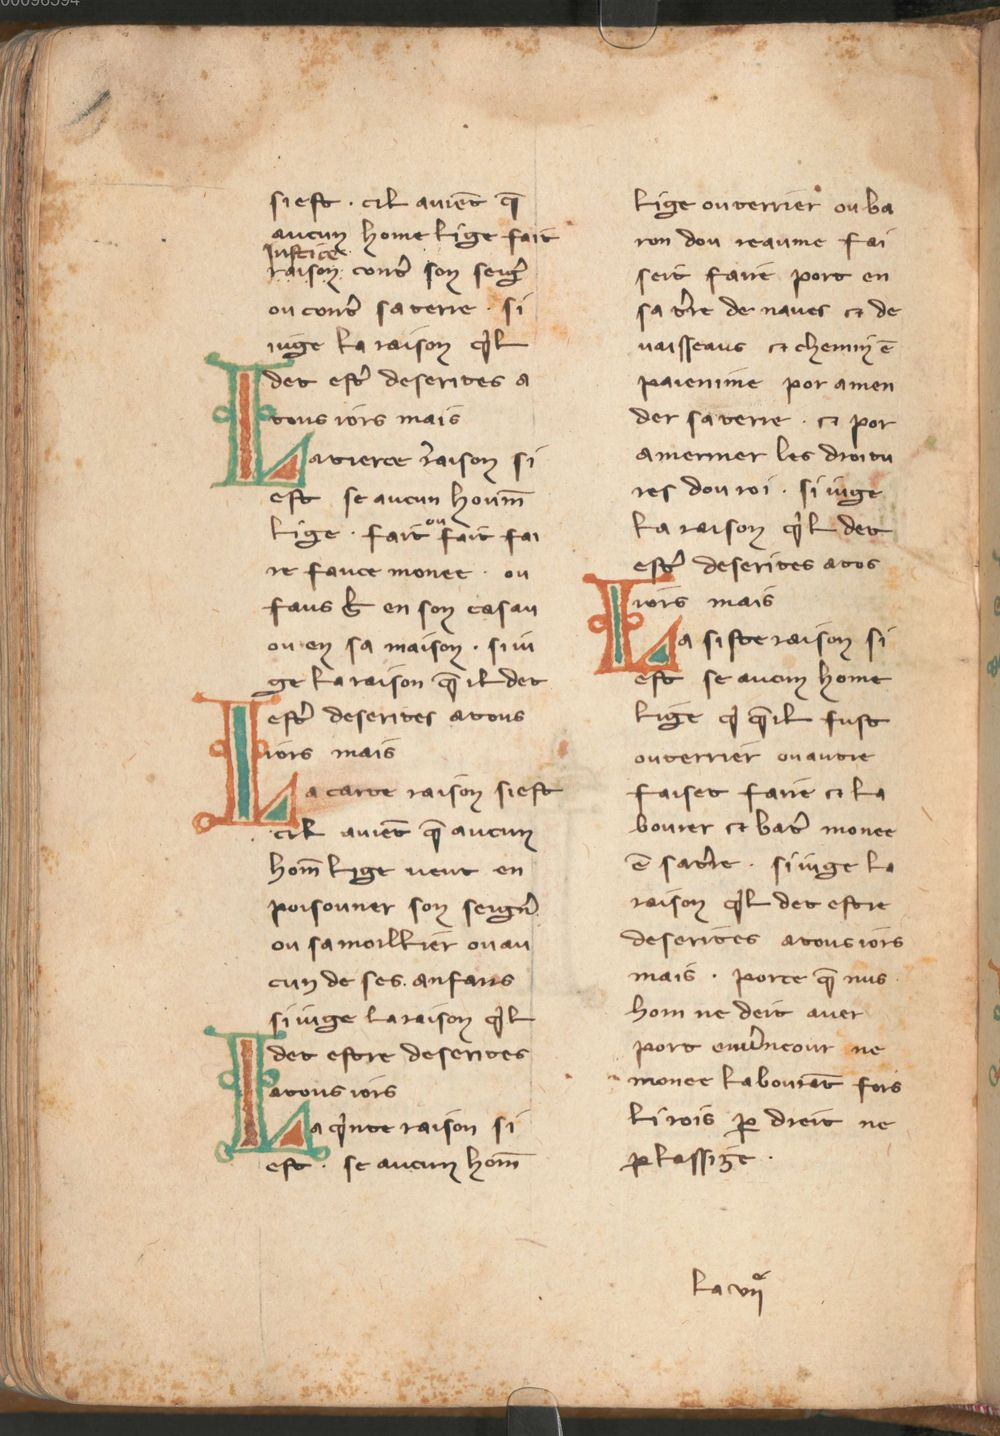 si est · cil auiēt q̄
aucun home lige fait
Justice
raison cont̉ son seig̉
ou cont̉ sa terre · si
iuge la raison q̉l
det est̉ deserites a
tous iors mais
La tierce raison si
est se aucun houm̄
lige · fait ou fait fai
re fauce monee · ou
faus en son casau
ou en sa maison · si iu
ge la raison q̄ il det
est̉ deserites a tous
iors mais
La carte raison si est
cil auiēt q̄ aucun
hom̄ lige veut en
poisouner son seign̉
ou sa moillier ou au
cun de ses anfans
si iuge la raison q̉l
det estre deserites
a tous iors
La q̉nte raison si
est · se aucun hom̄
lige ou terrier ou ba
ron dou reaume fai
seit faire port en
sa t̉re de naues et de
vaisseaus et chemin ē
paienime por amen
der sa terre · et por
amermer les droitu
res dou roi · si iuge
la raison q̉l det
est̉ deserites a tos
iors mais
La siste raison si
est se aucun home
lige q̉ q̄ il fust
ou terrier ou autre
faiset faire et la
bourer et bat̉ monee
ē sa t̉re · si iuge la
raison q̉l det estre
deserites a tous iors
mais · porce q̄ nus
hom ne deit auer
port ne
monee labourāt fors
li rois ꝑ dreit ne
ꝑ lassize ·
la vii̾ͤ